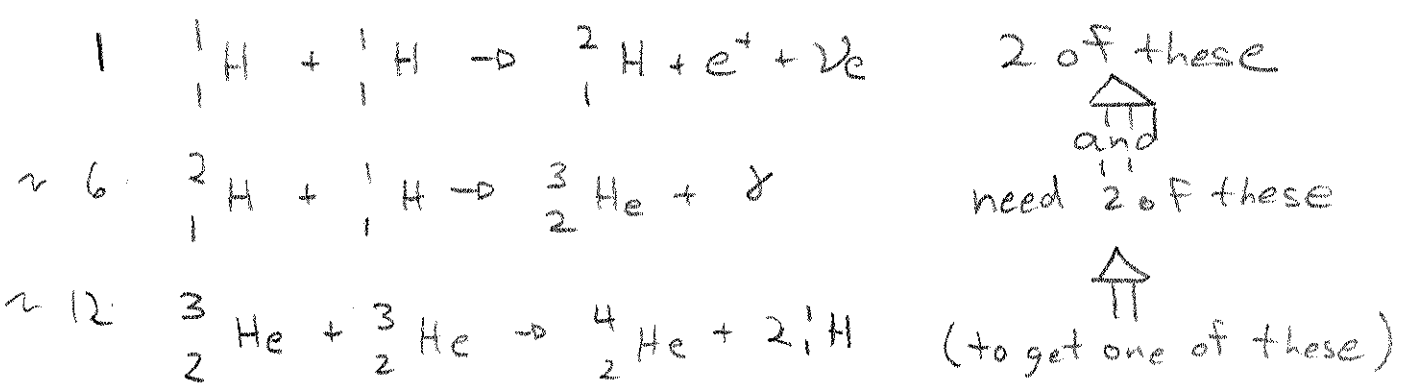 1 ¹₁H + ¹₁H → ²₁H + e⁺ + νe 2 of these
and
~ 6 ²₁H + ¹₁H → ³₂He + γ need 2 of these
~ 12 ³₂He + ³₂He → ⁴₂He + 2¹₁H (to get one of these)